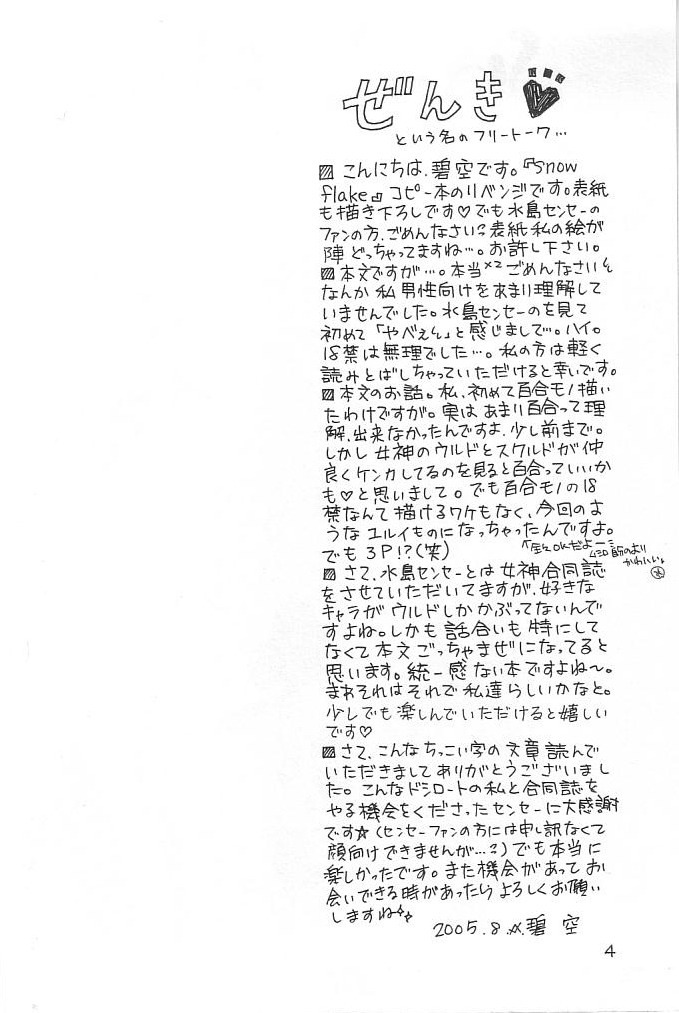 ぜんき♥
という名のフリートーク…
▨ こんにちは、碧空です。『snow
flake』コピー本のリベンジです。表紙
も描き下ろしです♡でも水島センセーの
ファンの方、ごめんなさい?表紙私の絵が
陣どっちゃってますね…。お許し下さい。
▨本文ですが…。本当×2ごめんなさい
なんか私男性向けをあまり理解して
いませんでした。水島センセーのを見て
初めて「やべぇ」と感じまして…。ハイ。
18禁は無理でした…。私の方は軽く
読みとばしちゃっていただけると幸いです。
▨本文のお話。私、初めて百合モノ描い
たわけですが。実はあまり百合って理
解、出来なかったんですよ、少し前まで。
しかし女神のウルドとスクルドが仲
良くケンカしてるのを見ると百合っていいか
も♡と思いまして。でも百合モノの18
禁なんて描けるワケもなく、今回のよ
うなユルイものになっちゃったんですよ。
でも3P!?(笑)
OKだよー
のより
かわいい
▨ さて、水島センセーとは女神合同誌
をさせていただいてますが、好きな
キャラがウルドしかかぶってないんで
すよね。しかも話合いも特にして
なくて本文ごっちゃまぜになってると
思います。統一感ない本ですよね〜。
まぁそれはそれで私達らしいかなと。
少しでも楽しんでいただけると嬉しい
です♡
▨さて、こんなちっこい字の文章読んで
いただきましてありがとうございまし
た。こんなドシロートの私と合同誌を
やる機会をくださったセンセーに大感謝
です☆(センセーファンの方には申し訳なくて
顔向けできませんが…?)でも本当に
楽しかったです。また機会があってお
会いできる時があったらよろしくお願い
しますね
2005.8.☆.碧 空
4